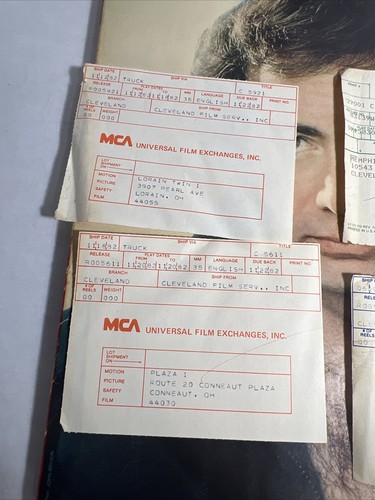 SHIP DATE SHIP VIA TITLE
TRUCK C 5921
RELEASE PLAY DATES FROM TO MM LANGUAGE DUE BACK PRINT NO.
35 ENGLISH
BRANCH SHIP FROM
CLEVELAND CLEVELAND FILM SERV., INC
# OF REELS WEIGHT
00 000
MCA UNIVERSAL FILM EXCHANGES, INC.
LOT SHIPMENT ON
MOTION PICTURE SAFETY FILM
LORAIN TWIN I
3907 PEARL AVE
LORAIN, OH
44055
SHIP DATE SHIP VIA TITLE
TRUCK C 5611
RELEASE PLAY DATES FROM TO MM LANGUAGE DUE BACK PRINT NO.
R005611 35 ENGLISH
BRANCH SHIP FROM
CLEVELAND CLEVELAND FILM SERV., INC
# OF REELS WEIGHT
00 000
MCA UNIVERSAL FILM EXCHANGES, INC.
LOT SHIPMENT ON
MOTION PICTURE SAFETY FILM
PLAZA I
ROUTE 20 CONNEAUT PLAZA
CONNEAUT, OH
44030
10543